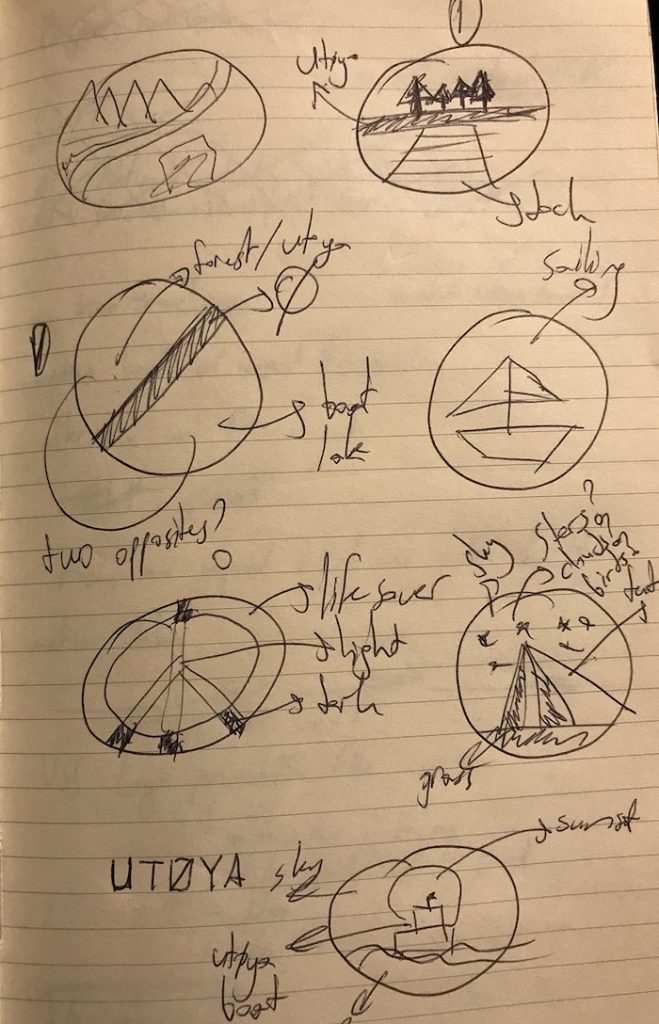 1
utøya
dock
forest/utøya
Ø
sailing
boat
lake
two opposites?
sky
stars?
clouds?
birds?
tent
life saver
light
dark
grass
UTØYA
sky
sunset
utøya
boat